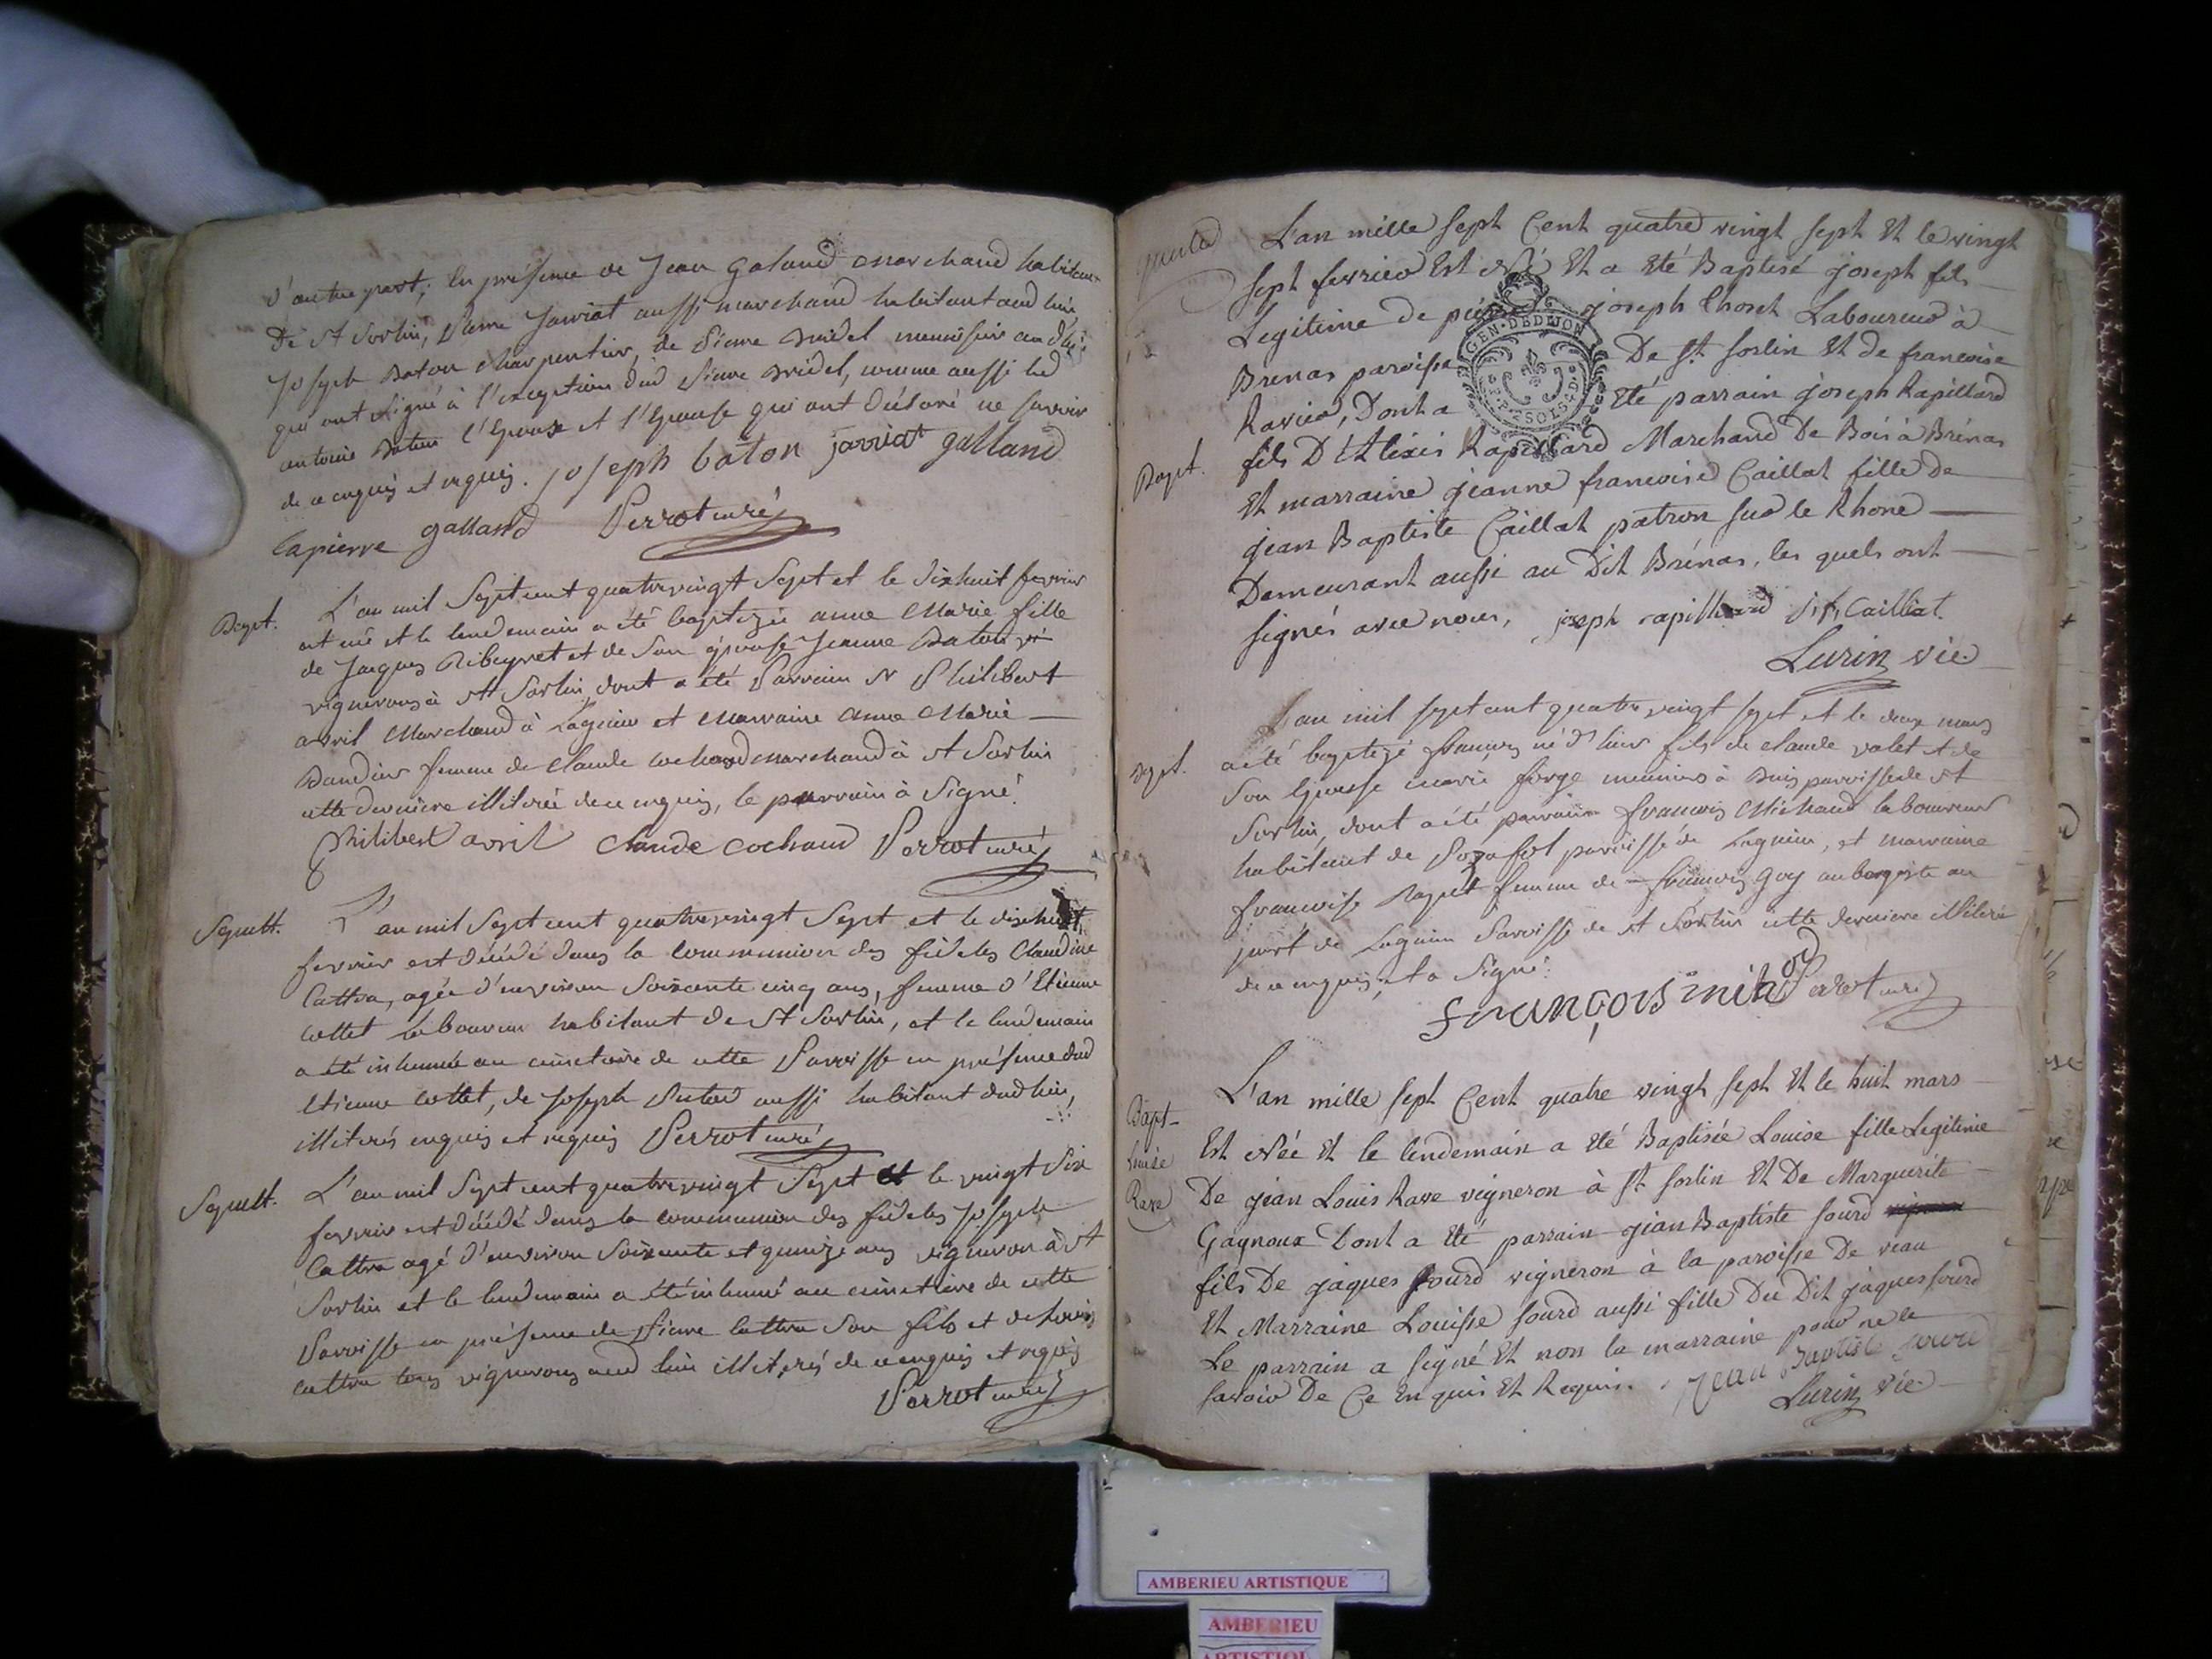 d'autre part, en présence de Jean Galand marchand habitant
De St Sorlin, Pierre Jarriat aussi marchand habitant aud lieu,
Joseph Baton charpentier, de Pierre Bridel menuisier aud
qui ont signé à l'exception dud Pierre Bridel, comme aussi led
antoine Baton l'epoux et l'epouse qui ont déclaré ne savoir
de ce enquis et requis. joseph baton jarriat galland
lapierre galland Perrot curé
Bapt. L'an mil Sept cent quatrevingt Sept et le dixhuit fevrier
est née et le lendemain a été baptizée anne Marie fille
de Jacques Ribeyret et de Son épouse Jeanne Baton
vignerons à St Sorlin, dont a été Parrain Sr Philibert
avril Marchand à Lagnieu et Marraine Anne Marie
Dandin femme de Claude cochard marchand à St Sorlin
cette derniere illiterée de ce enquis, le parrain à Signé.
Philibert avril Claude cochard Perrot curé
Sepult. L'an mil Sept cent quatrevingt Sept et le dixhuit
fevrier est décédé dans la communion des fideles Claudine
Cattra, agée d'environ Soixante cinq ans, femme d'Etienne
Cottet laboureur habitant de St Sorlin, et le lendemain
a été inhumée au cimetiere de cette Paroisse en présence dud
Etienne Cottet, de Joseph aussi habitant dud lieu,
illiterés enquis et requis Perrot curé
Sepult. L'an mil Sept cent quatrevingt Sept et le vingt Six
fevrier est décédé dans la communion des fideles Joseph
Cattra agé d'environ Soixante et quinze ans vigneron à St
Sorlin et le lendemain a été inhumé au cimetiere de cette
Paroisse en présence de Pierre Cattra Son fils et de Louis
Cattra tous vignerons aud lieu illiterés de ce enquis et requis
Perrot curé
L'an mille sept Cent quatre vingt sept Et le vingt
sept fevrier Est Né Et a Eté Baptisé joseph fils
Legitime de pierre joseph Choset Laboureur à
GEN·DE DIJON
Brenas paroisse De St sorlin Et de francoise
Ravier, Dont a Eté parrain joseph Rapillard
Bapt. fils D'Alexis Rapillard Marchand De Bois à Brénas
Et marraine jeanne francoise Caillat fille De
jean Baptiste Caillat patron sur le Rhone
Demeurant aussi au Dit Brénas, les quels ont
signés avec nous, joseph rapilliard j, f, Cailliat
Lurin vic
Bapt. L'an mil sept cent quatre vingt sept et le deux mars
a été baptizé francois né d'hier fils de claude valet et de
Son Epouse marie forge meuniers à Buis paroisse de St
Sorlin, dont a été parrain francois Michaud laboureur
habitant de Posafol paroisse de Lagnieu, et marraine
francoise Rapet femme de francois Goy aubergiste au
port de Lagnieu Paroisse de St Sorlin cette derniere illiterée
de ce enquis, et a Signé.
françois mich Perrot curé
L'an mille sept Cent quatre vingt sept Et le huit mars
Bapt. Est Née Et le lendemain a Eté Baptisée Louise fille Legitime
Louise De jean Louis Rave vigneron à St sorlin Et De Marguerite
Rave Gagnoux Dont a Eté parrain jean Baptiste sourd
fils De jaques sourd vigneron à la paroisse De veau
Et Marraine Louisse sourd aussi fille Du Dit jaques sourd
Le parrain a signé Et non la marraine pour ne le
savoir De Ce En quis Et Requis. jean Baptiste sourd
Lurin vic
AMBERIEU ARTISTIQUE
AMBERIEU
ARTISTIQUE